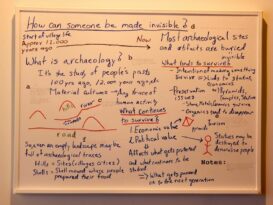 How can someone be made invisible?
Start of village life
Approx 12,000
years ago
Now
Most archaeological sites
and artifacts are buried
invisible
What is archaeology?
It's the study of people's pasts
100 yrs ago, 12,000 yrs ago
Material culture - Any trace of
human activity
river
road
So, even an empty landscape may be
full of archaeological traces
Hills = Sites (villages, cities)
Shells = Shell mound where people
prepared their food
What continues
to survive?
1. Economic value
2. Political value
Affects what gets protected
and what continues to be
studied
What gets passed
on to the next generation
What tends to survive?
Intentions of making something
-Preservation
issues
Pyramids,
Temples, Statues
Stone, Metals, Ceramics, guns
Organics tend to disappear
Statues may be
destroyed for
economic purpose
Notes: